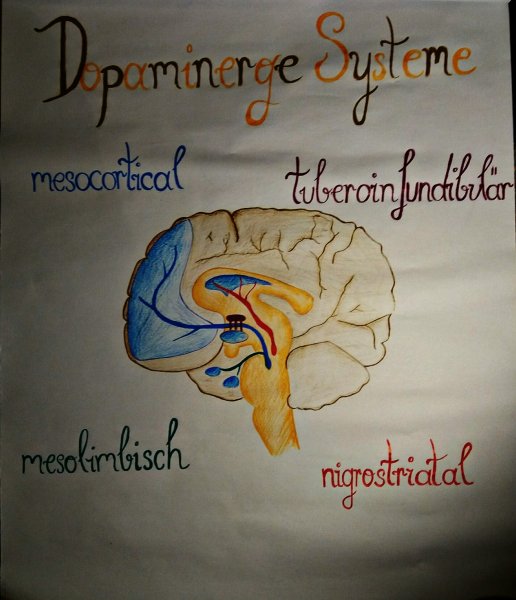 Dopaminerge Systeme
mesocortical
tuberoinfundibulär
mesolimbisch
nigrostriatal